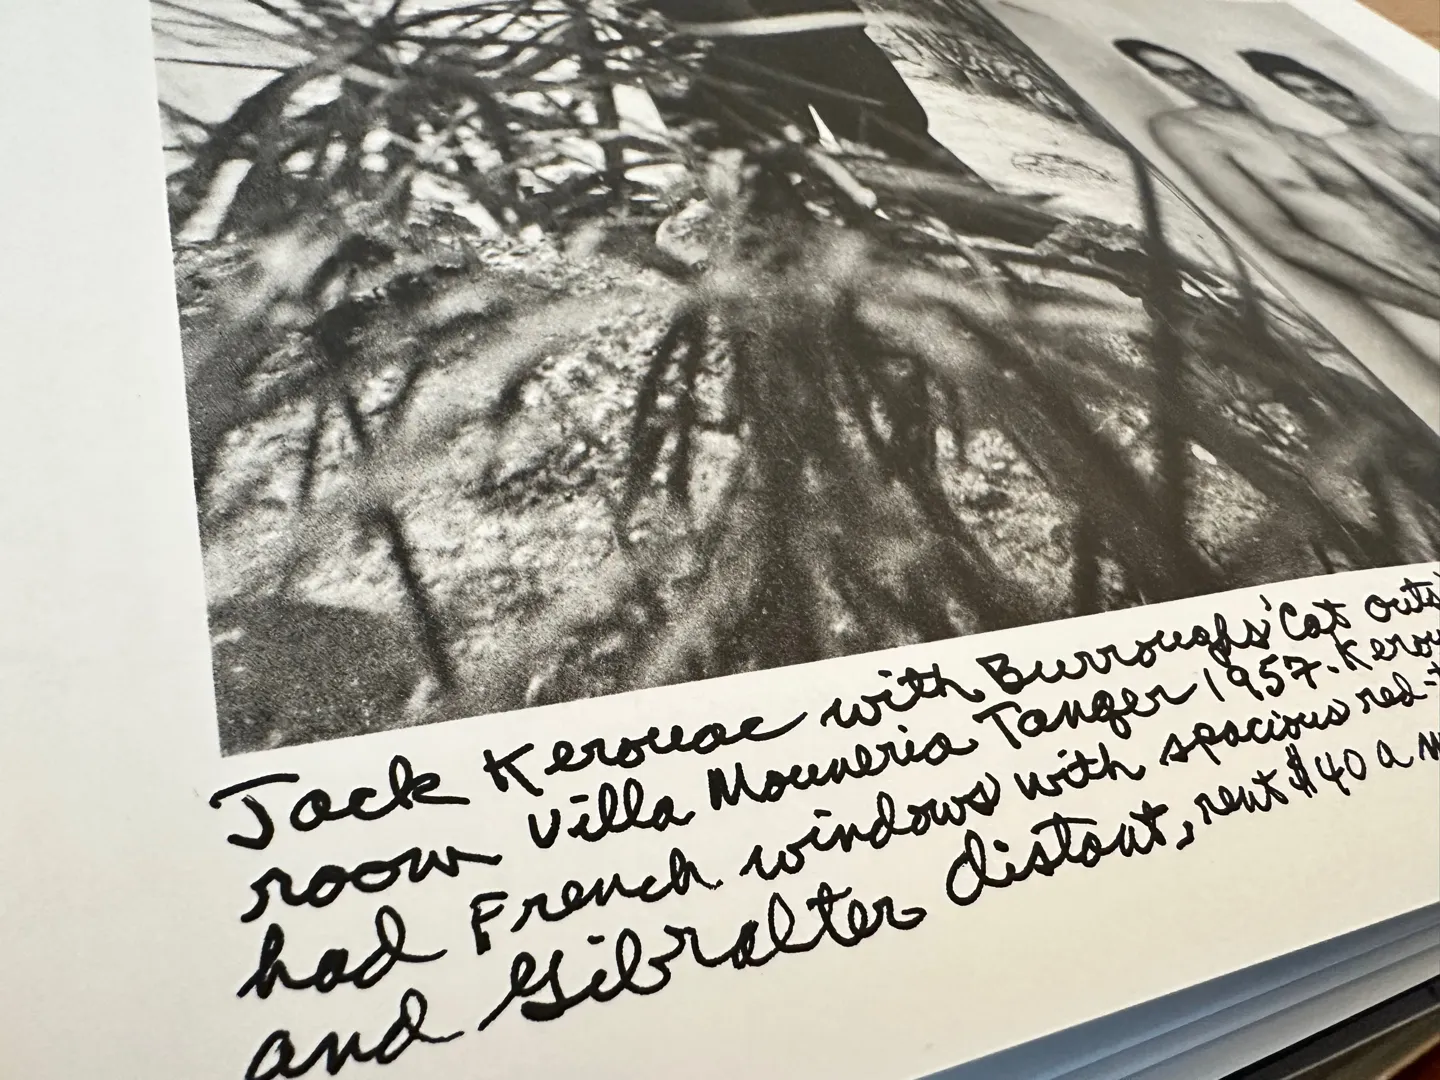 Jack Kerouac with Burroughs' Cat
room Villa Mouneria Tanger 1957.
had French windows with spacious
and Gibralter distant, rent $40 a